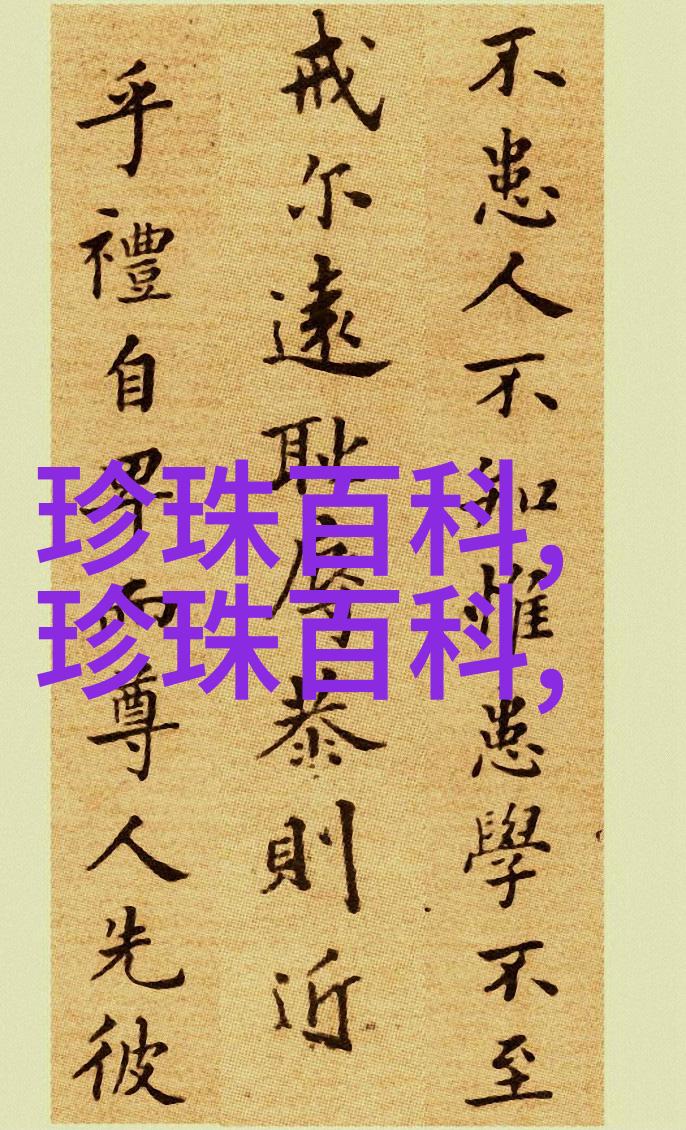 不患人不知惟患學不至
戒尔遠耻辱恭則近
乎禮自卑而尊人先彼
珍珠百科,
珍珠百科,